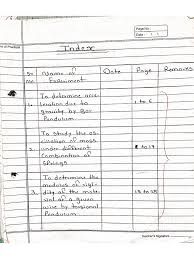 Page No.
Date
Index
Sr. No. Name of Experiment Date Page Remarks
1. To determine acceleration due to gravity by Bar Pendulum 1 to 6
2. To study the oscillation of mass under different combination of springs 8 to
3. To determine the modulus of rigidity of the material of a given wire by torsional Pendulum
Teacher's Signature